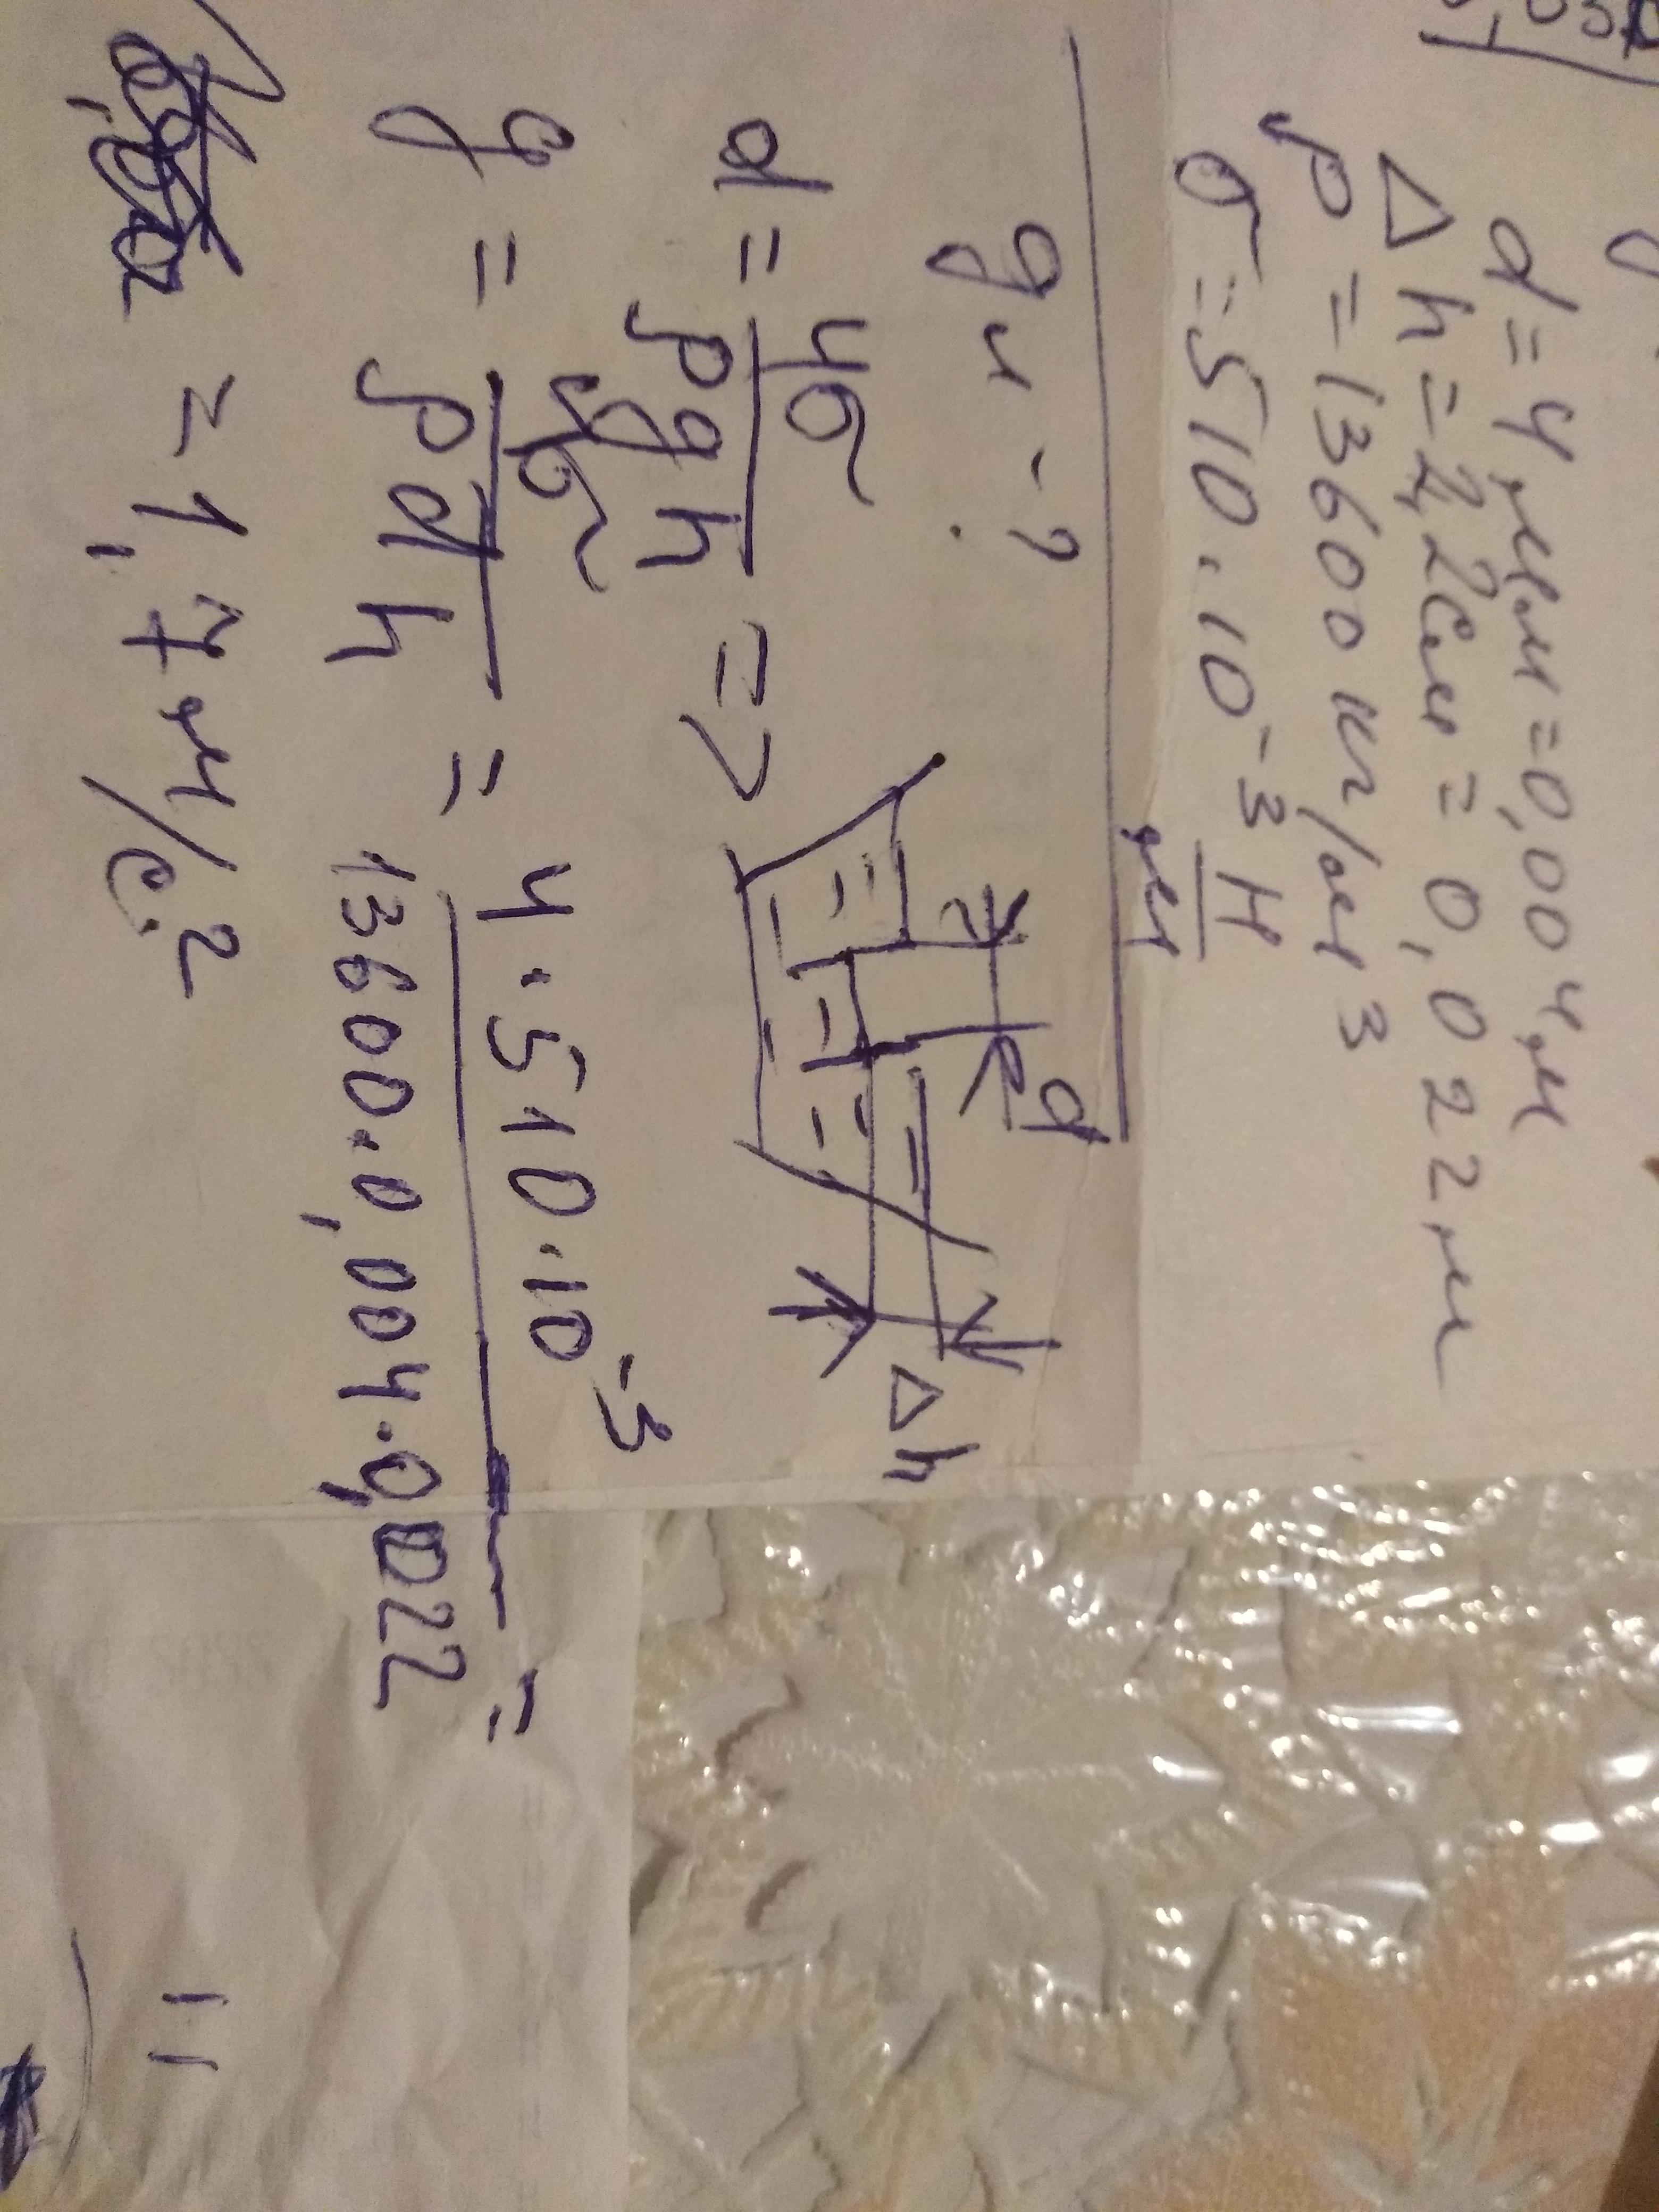 d = 4 мм = 0,004 м
Δh = 2,2 см = 0,022 м
ρ = 13600 кг/м3
σ = 510 · 10⁻³ Н/м
g м - ?
d = 4σ/ρgh =>
d
Δh
g = 4σ/ρdh = 4·510·10⁻³/13600·0,004·0,022 =
= 1,7 м/с²